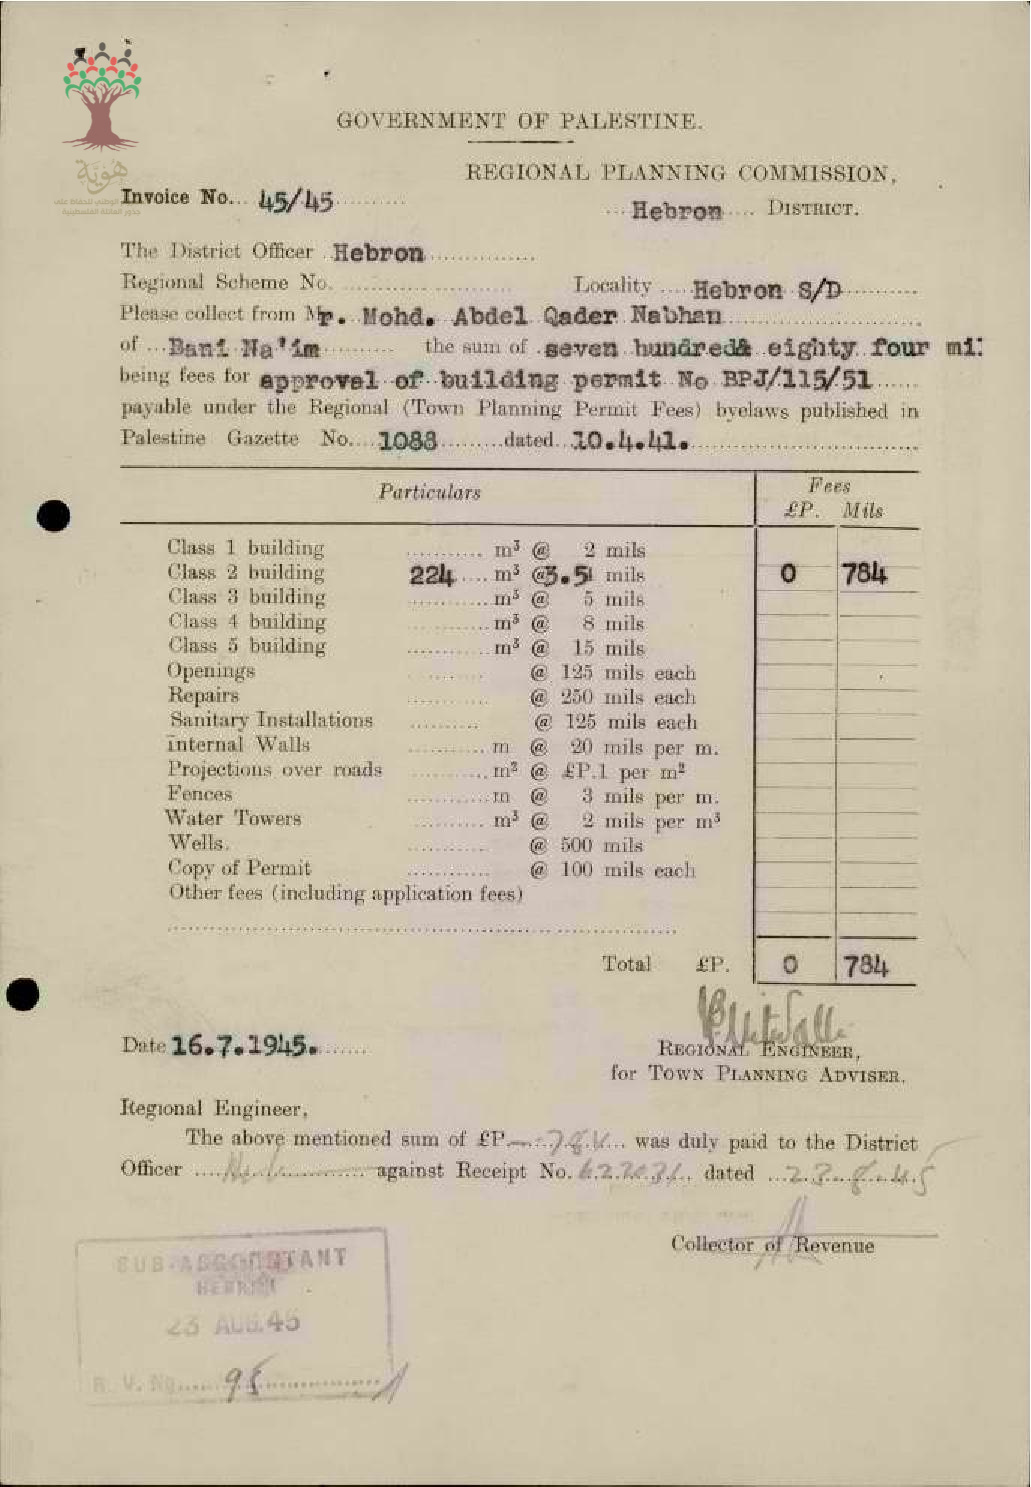 هوية
GOVERNMENT OF PALESTINE.
REGIONAL PLANNING COMMISSION,
Invoice No... 45/45
Hebron DISTRICT.
The District Officer Hebron
Regional Scheme No. Locality Hebron S/D
Please collect from Mr. Mohd. Abdel Qader Nabhan
of Bani Na'im the sum of seven hundred& eighty four mil
being fees for approval of building permit No BPJ/115/51
payable under the Regional (Town Planning Permit Fees) byelaws published in
Palestine Gazette No. 1088 dated 10.4.41.
Particulars Fees
£P. Mils
Class 1 building m³ @ 2 mils
Class 2 building 224 m³ @ 3.5 mils 0 784
Class 3 building m³ @ 5 mils
Class 4 building m³ @ 8 mils
Class 5 building m³ @ 15 mils
Openings @ 125 mils each
Repairs @ 250 mils each
Sanitary Installations @ 125 mils each
Internal Walls m @ 20 mils per m.
Projections over roads m² @ £P.1 per m²
Fences m @ 3 mils per m.
Water Towers m³ @ 2 mils per m³
Wells. @ 500 mils
Copy of Permit @ 100 mils each
Other fees (including application fees)
Total £P. 0 784
Date 16.7.1945.
REGIONAL ENGINEER,
for TOWN PLANNING ADVISER.
Regional Engineer,
The above mentioned sum of £P. -.784 was duly paid to the District
Officer against Receipt No. dated 23.8.45
Collector of Revenue
SUB-ACCOUNTANT
HEBRON
23 AUG.45
R. V. No.